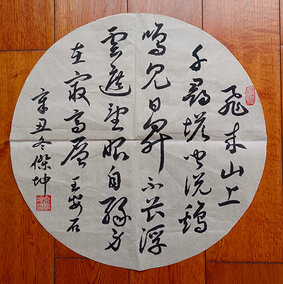 飛来山上
千尋塔聞説鷄
鳴見日昇不畏浮
雲遮望眼自緣身
在最高層 王安石
辛丑冬傑坤